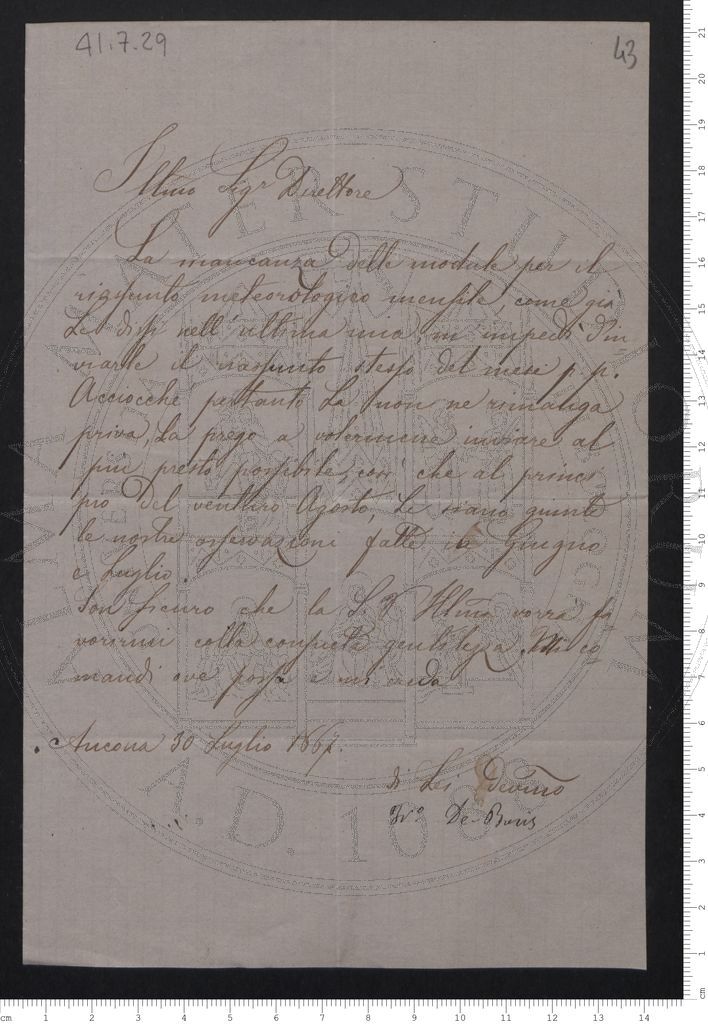 41.7.29
43
Illmo Sigr Direttore
La mancanza delle module per il
riassunto meteorologico mensile, come già
Le dissi nell'ultima mia, m'impedì d'in-
viarle il riassunto stesso del mese p. p.
Acciocchè pertanto La non ne rimanga
priva, La prego a volermene inviare al
più presto possibile così che al princi-
pio del venturo Agosto, Le siano giunte
le nostre osservazioni fatte in Giugno
e Luglio.
Son sicuro che la S. V. Illma vorrà fa-
vorirmi colla consueta gentilezza. Mi co-
mandi ove possa e mi creda
Ancona 30 Luglio 1867.
di Lei Devmo
De-Bosis